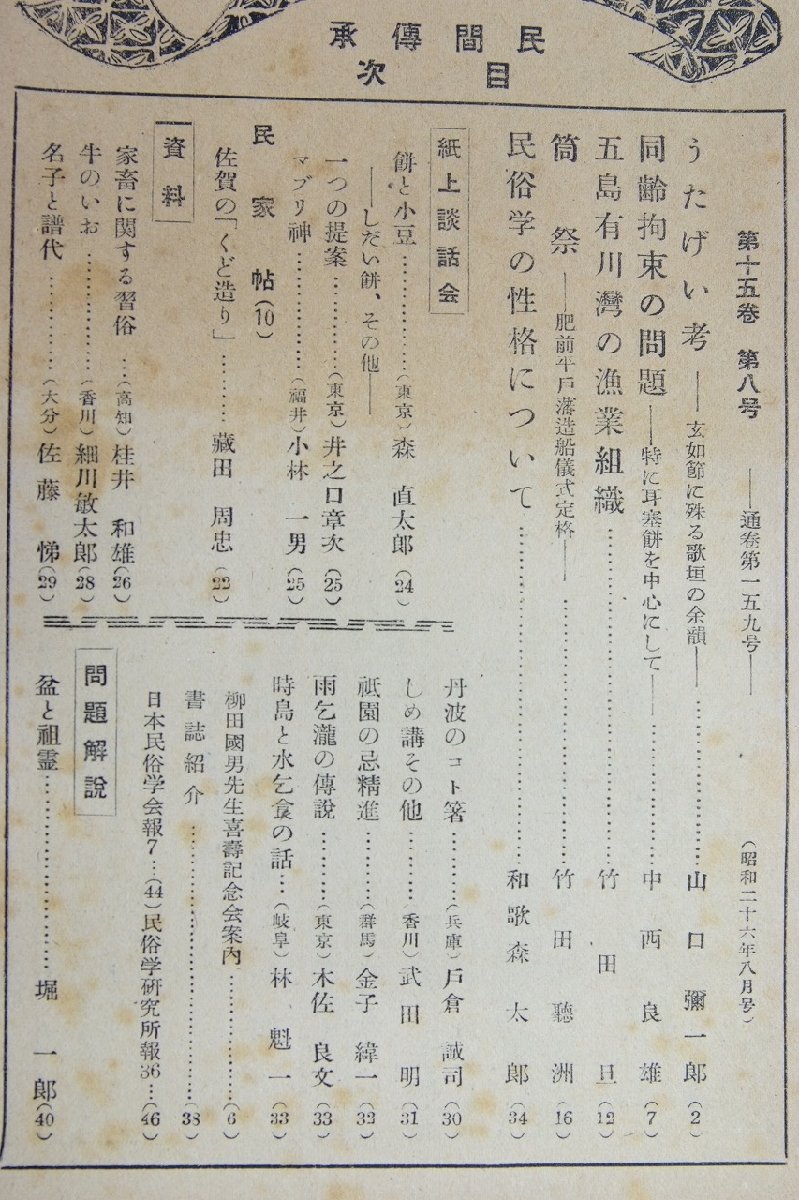 民間傳承
目次
第十五卷 第八号 ――通卷第一五九号―― (昭和二十六年八月号)
うたげい考――玄如節に殘る歌垣の余韻――………山口彌一郎(2)
同齢拘束の問題――特に耳塞餅を中心にして――………中西良雄(7)
五島有川灣の漁業組織………竹田旦(12)
筒祭――肥前平戸藩造船儀式定格――………竹田聽洲(16)
民俗学の性格について………和歌森太郎(34)
紙上談話会
餅と小豆………(東京)森直太郎(24)
――しだい餅、その他――
一つの提案………(東京)井之口章次(25)
マブリ神………(福井)小林一男(25)
民家帖(10)
佐賀の「くど造り」………藏田周忠(22)
資料
家畜に関する習俗…(高知)桂井和雄(26)
牛のいお………(香川)細川敏太郎(28)
名子と譜代………(大分)佐藤悌(29)
丹波のコト箸………(兵庫)戸倉誠司(30)
しめ講その他………(香川)武田明(31)
祇園の忌精進………(群馬)金子緯一(32)
雨乞瀧の傳説………(東京)木佐良文(33)
時鳥と水乞鳥の話…(岐阜)林魁一(33)
柳田國男先生喜壽記念会案内………(6)
書誌紹介………38
日本民俗学会報7…(44)民俗学研究所報36…(46)
問題解説
盆と祖霊………堀一郎(40)